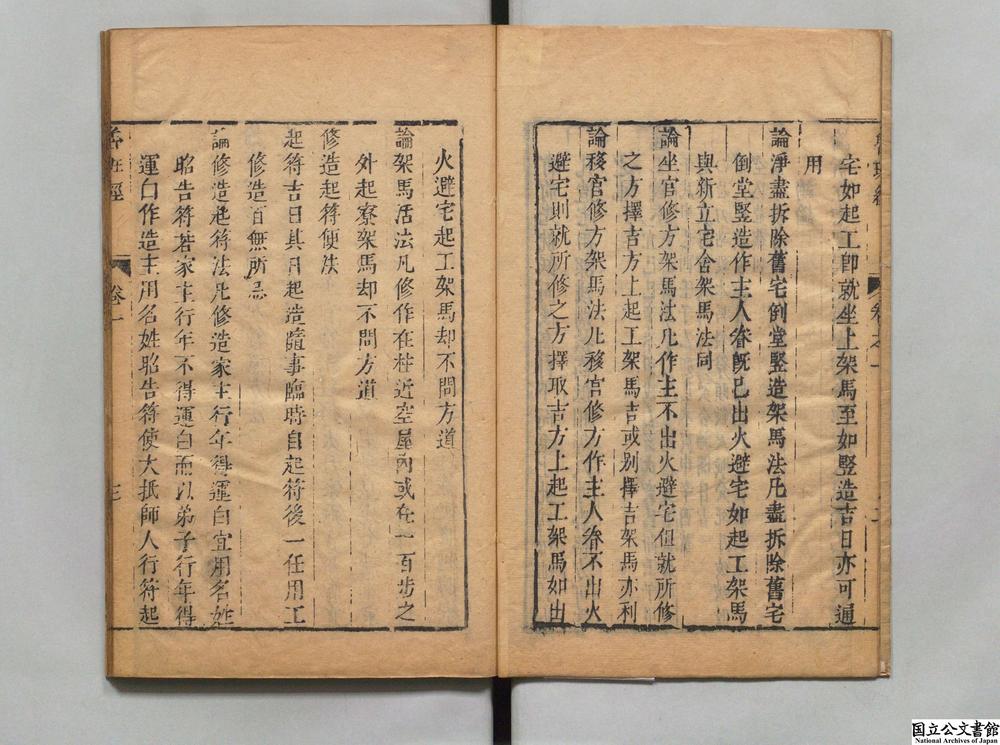 宅如起工即就坐上架馬至如竪造吉日亦可通
用
論淨盡拆除舊宅倒堂竪造架馬法凡盡拆除舊宅
倒堂竪造作主人眷既已出火避宅如起工架馬
與新立宅舍架馬法同
論坐宮修方架馬法凡作主不出火避宅但就所修
之方擇吉方上起工架馬吉或別擇吉架馬亦利
論移宮修方架馬法凡移宮修方作主人眷不出火
避宅則就所修之方擇取吉方上起工架馬如出
卷之一
火避宅起工架馬却不問方道
論架馬活法凡修作在柱近空屋內或在一百步之
外起寮架馬却不問方道
修造起符便法
起符吉日其日起造隨事臨時自起符後一任用工
修造百無所忌
論修造起符法凡修造家主行年得運白宜用名姓
昭告符若家主行年不得運白而以弟子行年得
運白作造主用名姓昭告符使大抵師人行符起
經
卷一
三
国立公文書館
National Archives of Japan